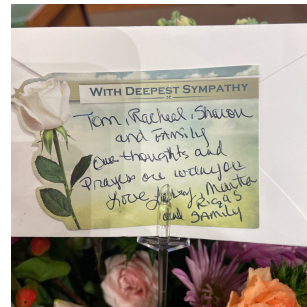 WITH DEEPEST SYMPATHY
Tom, Racheal, Sharon
and Family
Our thoughts and
Prayers are with you
Love, Martha
Rigas
and Family